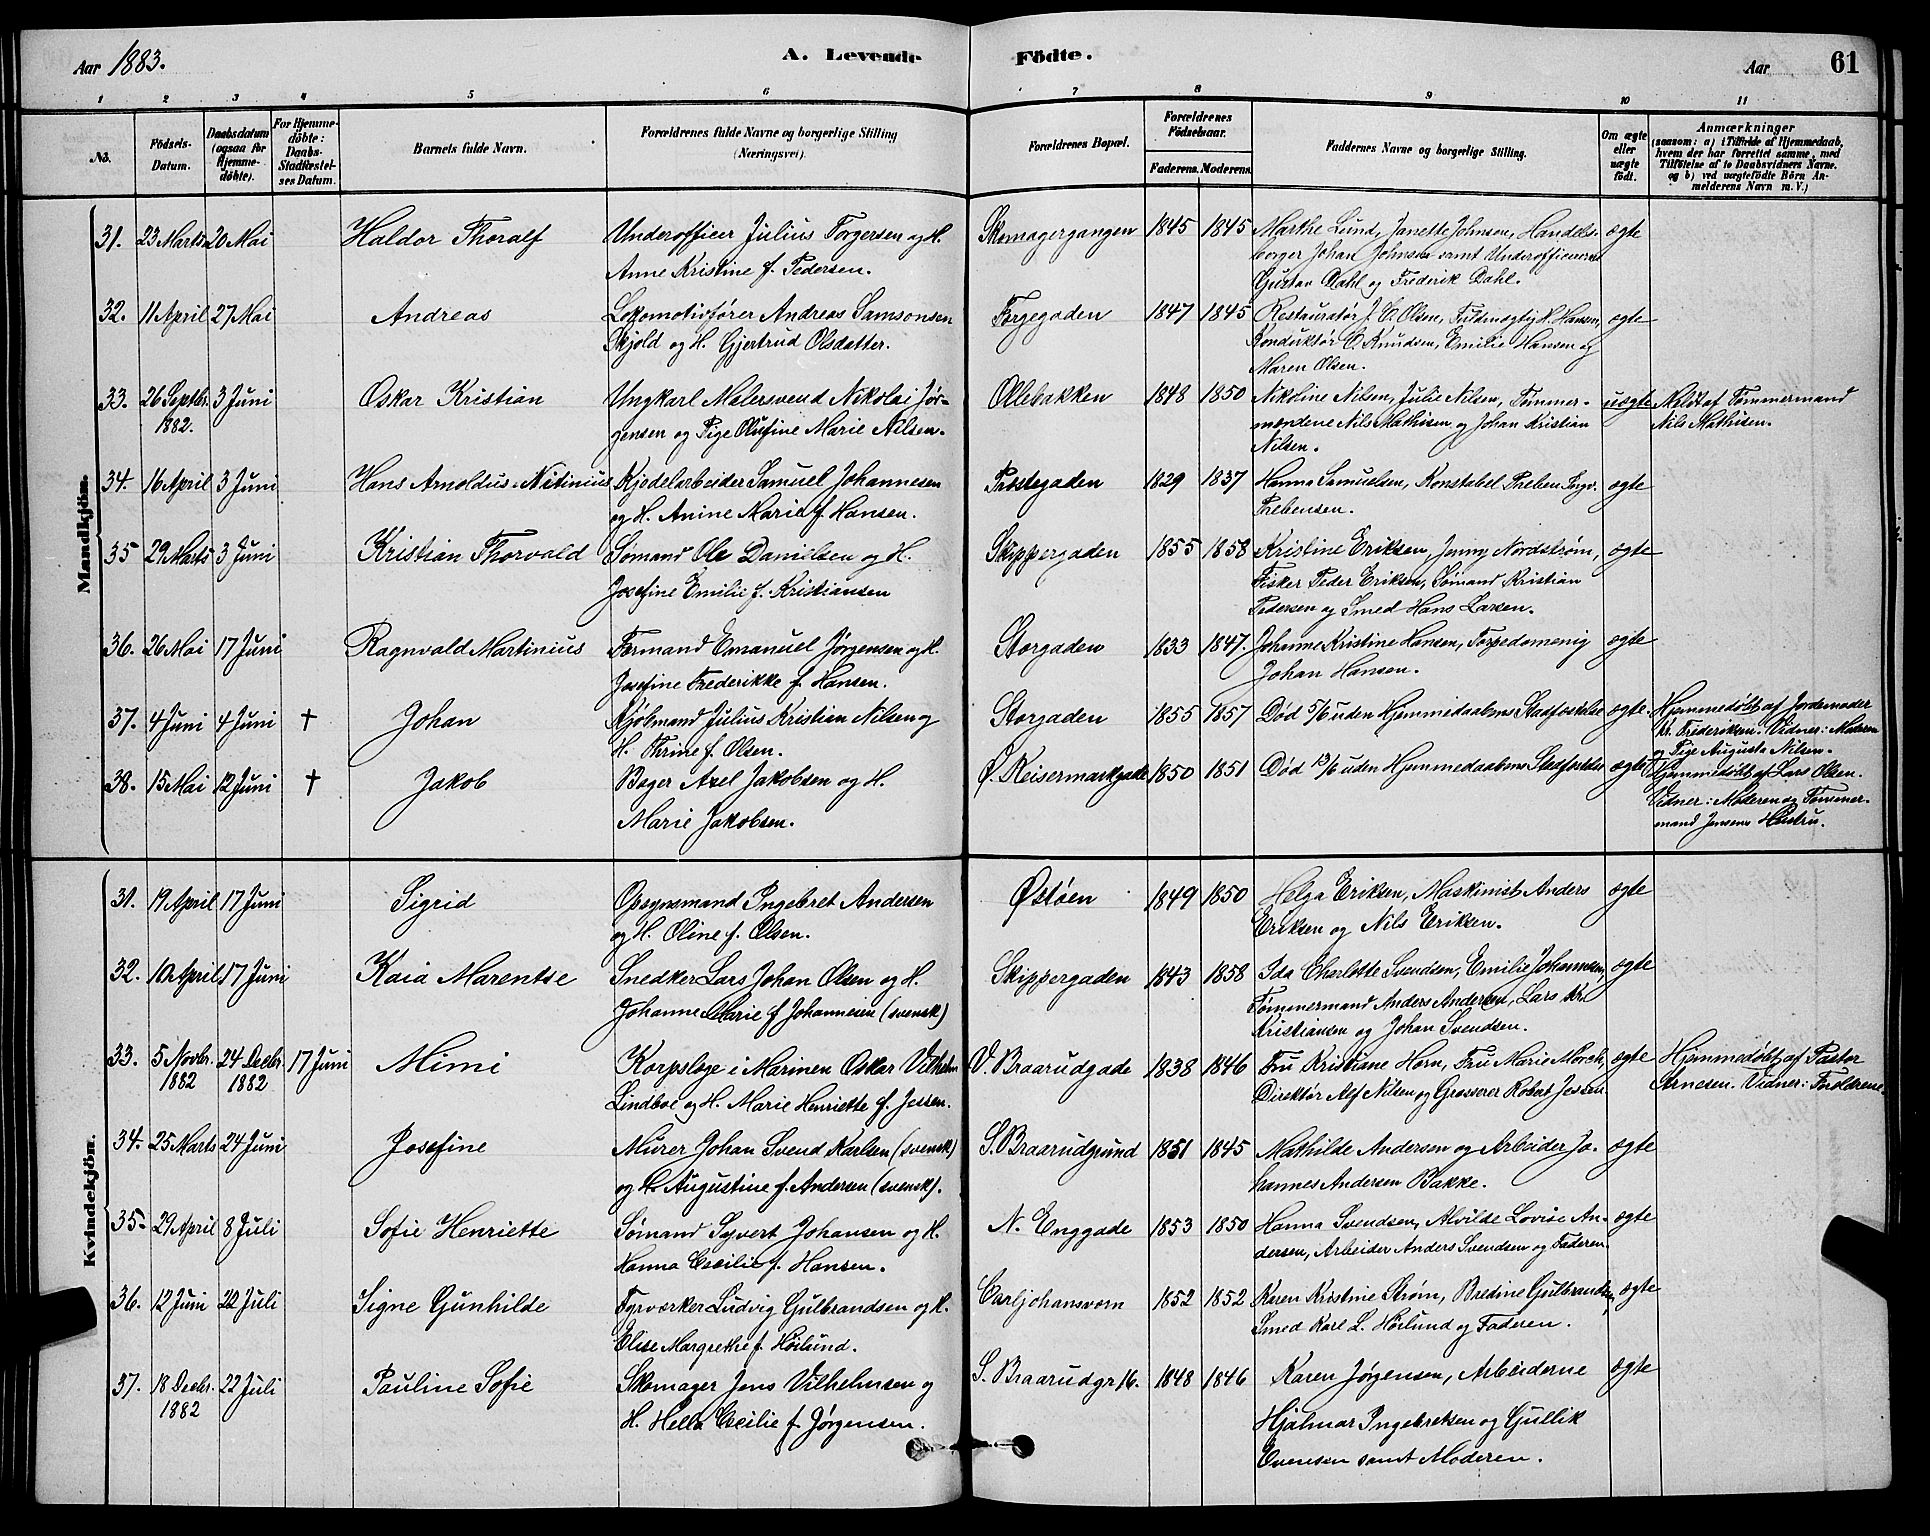 Aar 1883. A. Levende Fødte. Aar 61
1 2 3 4 5 6 7 8 9 10 11
No. Fødsels-Datum. Daabsdatum (ogsaa for Hjemme-døbte). For Hjemme-døbte: Daabs-Stadfæstel-ses Datum. Barnets fulde Navn. Forældrenes fulde Navne og borgerlige Stilling (Næringsvei). Forældrenes Bopæl. Forældrenes Fødselsaar. Faderens. Moderens. Faddernes Navne og borgerlige Stilling. Om ægte eller uægte født. Anmærkninger (saasom: a) i Tilfælde af Hjemmedaab, hvem der har forrettet samme, med Tilføielse af to Daabsvidners Navne. og b) ved uægtefødte Børn An-melderens Navn m. V.)
Mandkjøn.
31. 23 Marts 20 Mai Haldor Thoralf Underofficer Julius Torgersen og H. Skomagergangen 1845 1845 Marthe Lund, Janette Johnsen, Handels- ægte
Anne Kristine f. Pedersen. borger Johan Johnsen samt Underofficererne
Gustav Dahl og Frederik Dahl.
32. 11 April 27 Mai Andreas Lokomotivfører Andreas Samsonsen Torgegaden 1847 1845 Restauratør J. C. Olsen, Fuldmægtig H. Hansen, ægte
Skjold og H. Gjertrud Olsdatter. Konduktør C. Knudsen, Emilie Hansen og
Maren Olsen.
33. 26 Septbr. 3 Juni Oskar Kristian Ungkarl Malersvend Nikolai Jør- Ollebakken 1848 1850 Nikoline Nilsen, Julie Nilsen, Tømmer- uægte Meldt af Tømmermand
1882. gensen og Pige Olufine Marie Nilsen. mændene Nils Mathisen og Johan Kristian Nils Mathisen.
Nilsen.
34. 16 April 3 Juni Hans Arnoldus Nitinius Kjedelarbeider Samuel Johannesen Prestegaden 1829 1837 Hanna Samuelsen, Konstabel Preben Ingv. ægte
og H. Anine Marie f. Hansen. Prebensen.
35 29 Marts 3 Juni Kristian Thorvald Sømand Ole Danielsen og H. Skippergaden 1855 1858 Kristine Eriksen, Jenny Nordstrøm, ægte
Josefine Emilie f. Kristiansen Fisker Peder Eriksen, Sømand Kristian
Pedersen og Smed Hans Larsen.
36. 26 Mai 17 Juni Ragnvald Martinius Formand Emanuel Jørgensen og H. Storgaden 1833 1847. Johanne Kristine Hansen, Torpedomenig ægte
Josefine Frederikke f. Hansen. Johan Hansen.
37. 4 Juni 4 Juni † Johan Kjølmand Julius Kristian Nilsen og Storgaden 1855 1857 Død 5/6 uden Hjemmedaabens Stadfæstelse ægte. Hjemmedøbt af Jordemoder
H. Thrine f. Olsen. Kr. Frideriksen. Vidner: Moderen
og Pige Augusta Nilsen.
38. 15 Mai 12 Juni † Jakob Bager Axel Jakobsen og H. Ø. Keisermarkgade 1850 1851 Død 13/6 uden Hjemmedaabens Stadfæstelse ægte Hjemmedøbt af Lars Olsen.
Marie Jakobsen. Vidner: Moderen og Tømmer-
mand Jensens Hustru.
Kvindekjøn.
31. 19 April 17 Juni Sigrid Opsynsmand Ingebret Andersen Østøen 1849 1850 Helga Eriksen, Maskinist Anders ægte
og H. Oline f. Olsen. Eriksen og Nils Eriksen.
32. 10 April 17 Juni Kaia Marentse Snedker Lars Johan Olsen og H. Skippergaden 1843 1858 Ida Charlotte Svendsen, Emilie Johannesen, ægte
Johanne Marie f Johannesen (svensk) Tømmermand Anders Andersen, Lars Kr.
Kristiansen og Johan Svendsen.
33. 5 Novbr. 24 Decbr. 17 Juni Mimi Korpslæge i Marinen Oskar Vilhelm V. Braarudgade 1838 1846 Fru Kristiane Horn, Fru Marie Morch, ægte Hjemmedøbt af Pastor
1882 1882 Lindboe og H. Marie Henriette f. Jessen. Direktør Alf Nilsen og Grosserer Robert Jessen. Arnesen. Vidner: Forældrene.
34. 25 Marts 24 Juni Josefine Murer Johan Svend Karlsen (svensk) S. Braarudgrund 1851 1845 Mathilde Andersen og Arbeider Jo- ægte
og H. Augustine f. Andersen (svensk). hannes Andersen Bakke.
35. 29 April 8 Juli Sofie Henriette Sømand Syvert Johansen og H. N. Enggade 1853 1850 Hanna Svendsen, Alvilde Lovise An- ægte
Hanna Cecilie f. Hansen. dersen, Arbeider Anders Svendsen og Faderen.
36. 12 Juni 22 Juli Signe Gunhilde Fyrværker Ludvig Gulbrandsen og H. Carljohansværn 1852 1852 Karen Kristine Strøm, Bredine Gulbrandsen, ægte
Elise Margrethe f. Høilund. Smed Karl L. Høilund og Faderen.
37. 18 Decbr. 22 Juli Pauline Sofie Skomager Jens Vilhelmsen og S. Braarudgr 16. 1848 1846 Karen Jørgensen, Arbeiderne ægte
1882 H. Hella Cecilie f. Jørgensen. Hjalmar Ingebretsen og Gullik
Evensen samt Moderen.